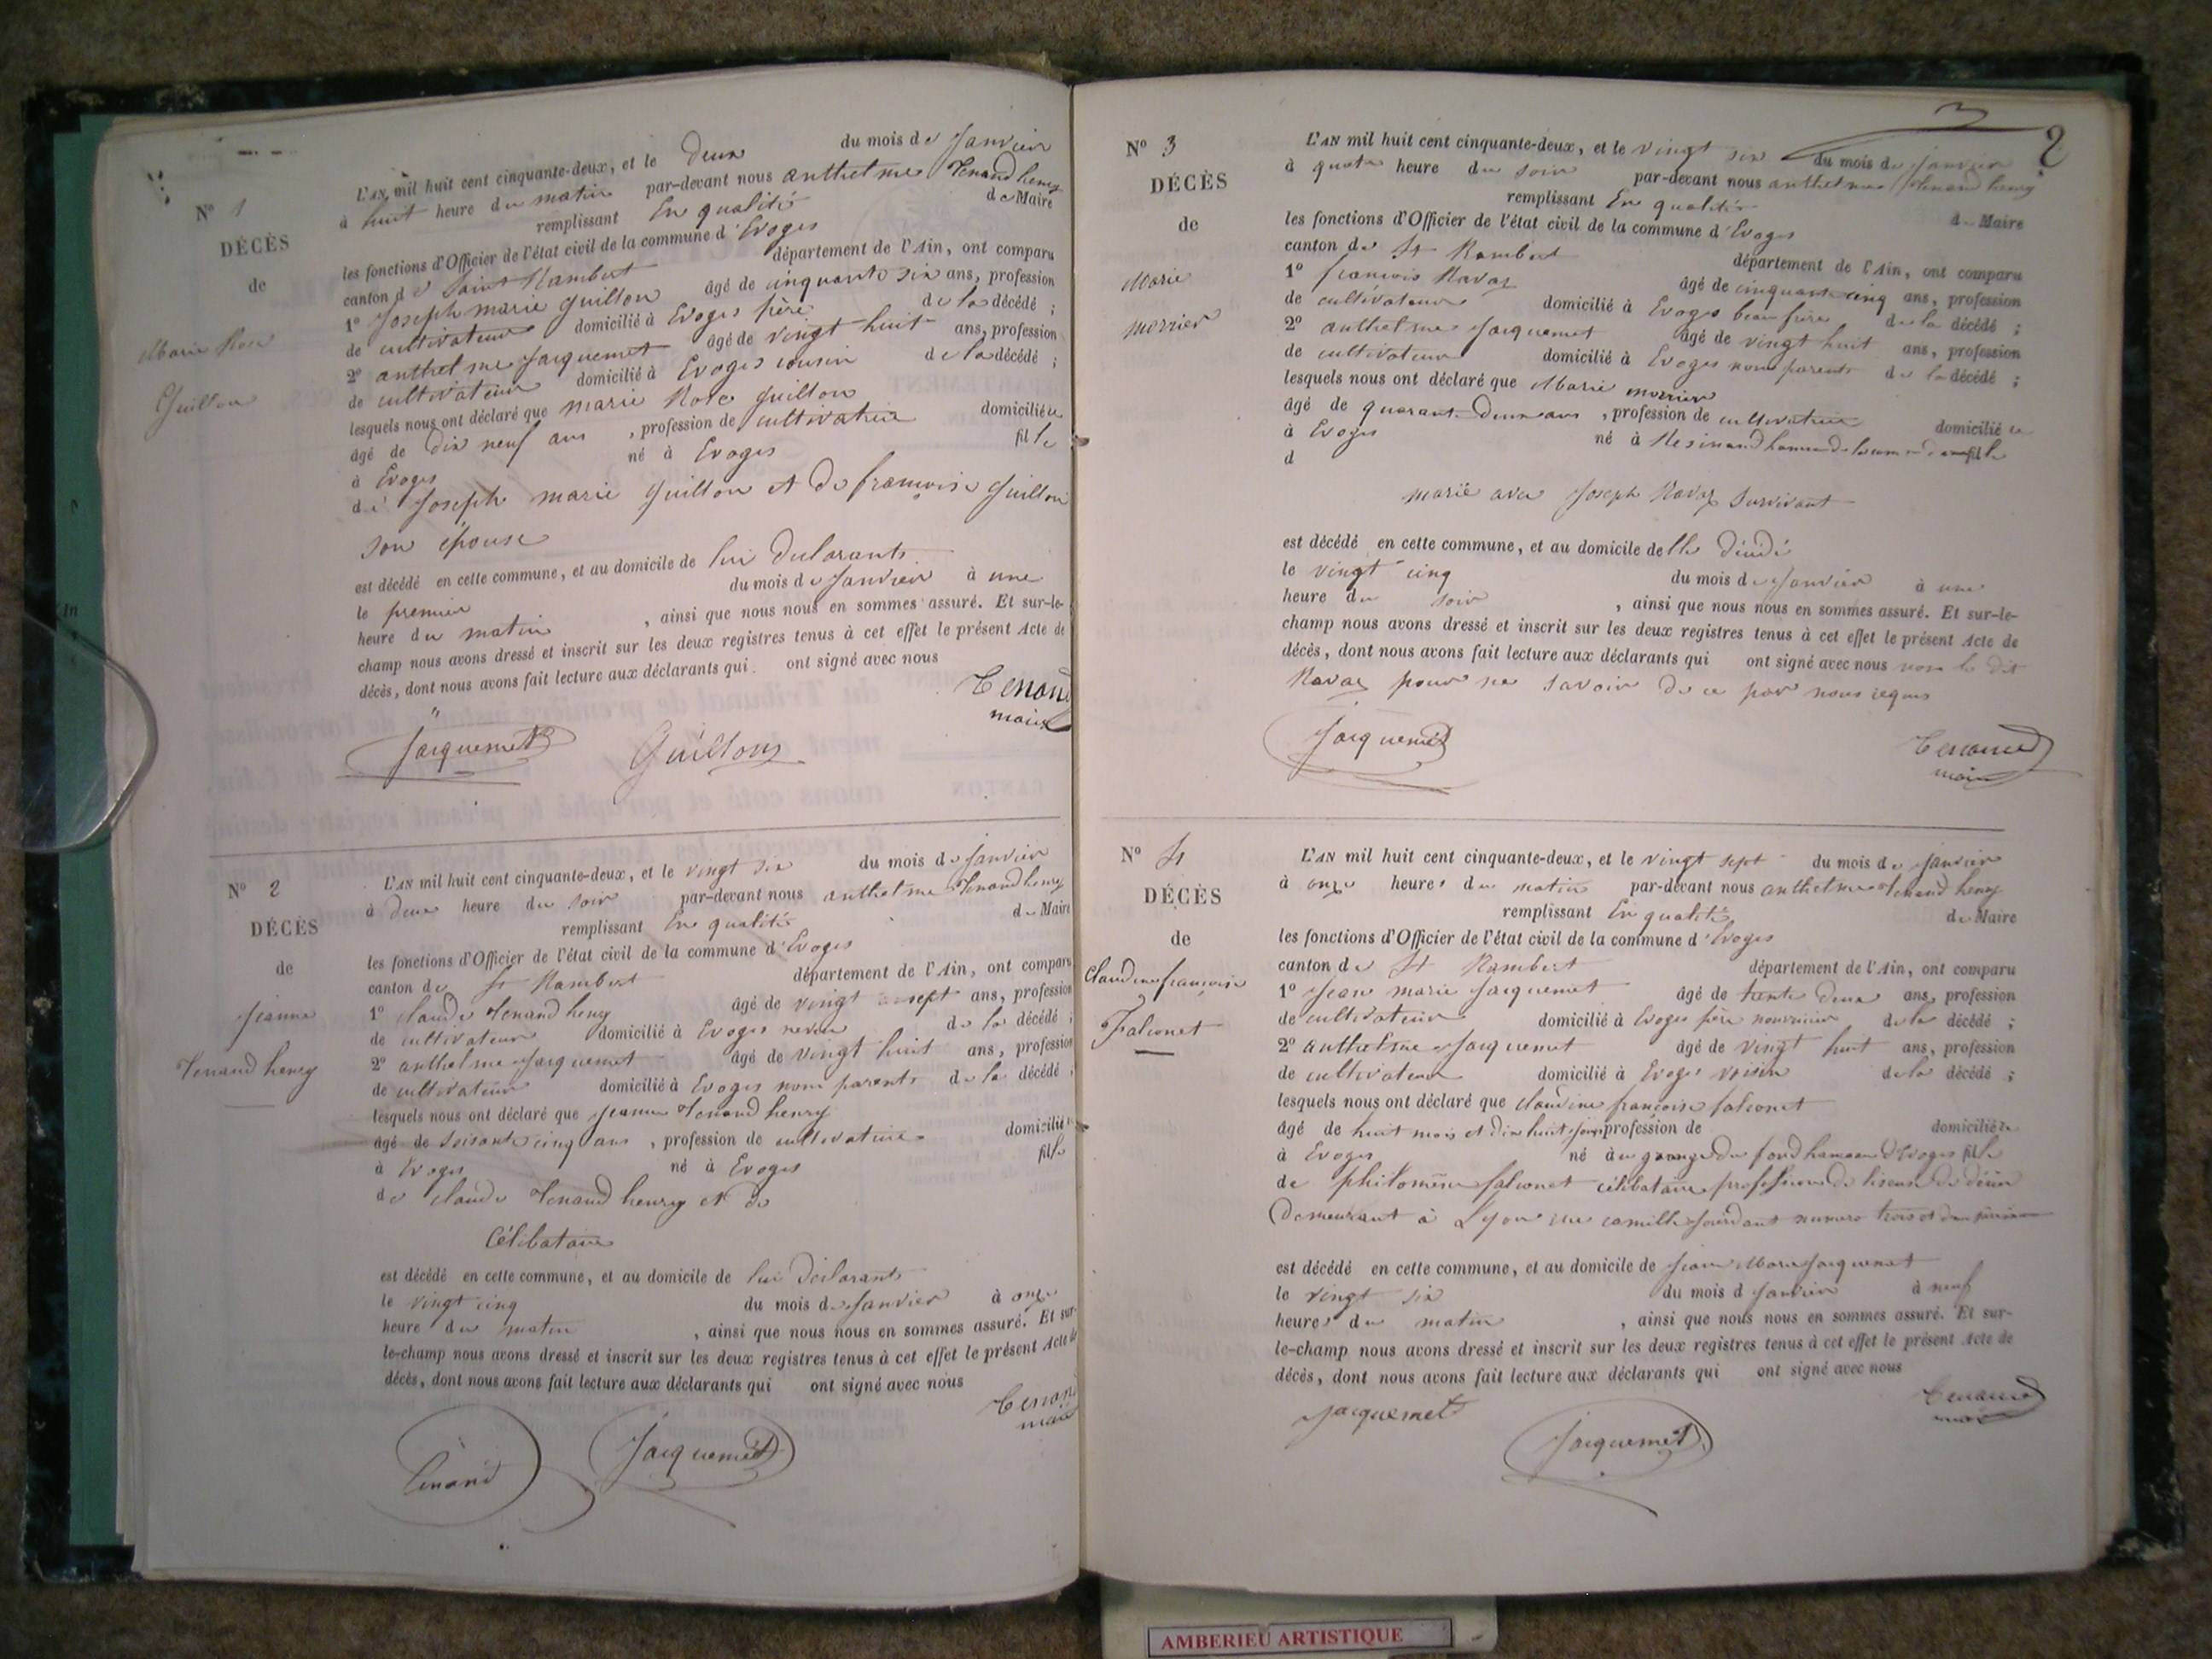 Nº 1
DÉCÈS
de
Marie Rose
Guillon
L'AN mil huit cent cinquante-deux, et le deux du mois de Janvier
à huit heure du matin par-devant nous anthelme Tenand henry
remplissant En qualité de Maire
les fonctions d'Officier de l'état civil de la commune d'Evoges
canton de Saint Rambert département de l'Ain, ont comparu
1º Joseph marie Guillon âgé de cinquante six ans, profession
de cultivateur domicilié à Evoges père de la décédé ;
2º anthelme Jacquemet âgé de vingt huit ans, profession
de cultivateur domicilié à Evoges cousin de la décédé ;
lesquels nous ont déclaré que marie Rose Guillon
âgé de dix neuf ans , profession de cultivatrice domiciliée
à Evoges né à Evoges fille
de Joseph marie Guillon et de francoise Guillon
son épouse
est décédé en cette commune, et au domicile de lui déclarants
le premier du mois de Janvier à une
heure du matin , ainsi que nous nous en sommes assuré. Et sur-le-
champ nous avons dressé et inscrit sur les deux registres tenus à cet effet le présent Acte de
décès, dont nous avons fait lecture aux déclarants qui ont signé avec nous
Tenand
maire
Jacquemet Guillon
Nº 2
DÉCÈS
de
Jeanne
Tenand henry
L'AN mil huit cent cinquante-deux, et le vingt six du mois de Janvier
à deux heure du soir par-devant nous anthelme Tenand henry
remplissant En qualité de Maire
les fonctions d'Officier de l'état civil de la commune d'Evoges
canton de St Rambert département de l'Ain, ont comparu
1º claude Tenand henry âgé de vingt sept ans, profession
de cultivateur domicilié à Evoges neveu de la décédé ;
2º anthelme Jacquemet âgé de vingt huit ans, profession
de cultivateur domicilié à Evoges non parents de la décédé ;
lesquels nous ont déclaré que jeanne Tenand henry
âgé de soisante cinq ans , profession de cultivatrice domicilié
à Evoges né à Evoges fille
de claude Tenand henry et de
Célibataire
est décédé en cette commune, et au domicile de lui déclarants
le vingt cinq du mois de Janvier à onze
heure du matin , ainsi que nous nous en sommes assuré. Et sur-
le-champ nous avons dressé et inscrit sur les deux registres tenus à cet effet le présent Acte de
décès, dont nous avons fait lecture aux déclarants qui ont signé avec nous
Tenand
maire
Tenand Jacquemet
3
2
Nº 3
DÉCÈS
de
Marie
morrier
L'AN mil huit cent cinquante-deux, et le vingt six du mois de Janvier
à quatre heure du soir par-devant nous anthelme Tenand henry
remplissant En qualité de Maire
les fonctions d'Officier de l'état civil de la commune d'Evoges
canton de St Rambert département de l'Ain, ont comparu
1º francois Ravaz âgé de cinquante cinq ans, profession
de cultivateur domicilié à Evoges beau frère de la décédé ;
2º anthelme Jacquemet âgé de vingt huit ans, profession
de cultivateur domicilié à Evoges non parents de la décédé ;
lesquels nous ont déclaré que Marie morrier
âgé de quarante deux ans , profession de cultivatrice domiciliée
à Evoges né à Resinand fille
d
marié avec Joseph Ravaz Survivant
est décédé en cette commune, et au domicile de lle décédé
le vingt cinq du mois de Janvier à une
heure du soir , ainsi que nous nous en sommes assuré. Et sur-le-
champ nous avons dressé et inscrit sur les deux registres tenus à cet effet le présent Acte de
décès, dont nous avons fait lecture aux déclarants qui ont signé avec nous non le dit
Ravaz pour ne savoir de ce par nous requis
Jacquemet Tenand
maire
Nº 4
DÉCÈS
de
Claudine françoise
Falconet
L'AN mil huit cent cinquante-deux, et le vingt sept du mois de Janvier
à onze heures du matin par-devant nous anthelme Tenand henry
remplissant En qualité de Maire
les fonctions d'Officier de l'état civil de la commune d'Evoges
canton de St Rambert département de l'Ain, ont comparu
1º Jean marie Jacquemet âgé de trente deux ans, profession
de cultivateur domicilié à Evoges père nourricier de la décédé ;
2º anthelme Jacquemet âgé de vingt huit ans, profession
de cultivateur domicilié à Evoges voisin de la décédé ;
lesquels nous ont déclaré que claudine françoise falconet
âgé de huit mois et dix huit jours profession de domiciliée
à Evoges né à au grange du fond hameau d'Evoges fille
de philomène falconet célibataire profession de
Demeurant à Lyon rue camille jourdant numero trois et
est décédé en cette commune, et au domicile de Jean Marie Jacquemet
le vingt six du mois d Janvier à neuf
heures du matin , ainsi que nous nous en sommes assuré. Et sur-
le-champ nous avons dressé et inscrit sur les deux registres tenus à cet effet le présent Acte de
décès, dont nous avons fait lecture aux déclarants qui ont signé avec nous
Jacquemet Jacquemet Tenand
maire
AMBERIEU ARTISTIQUE